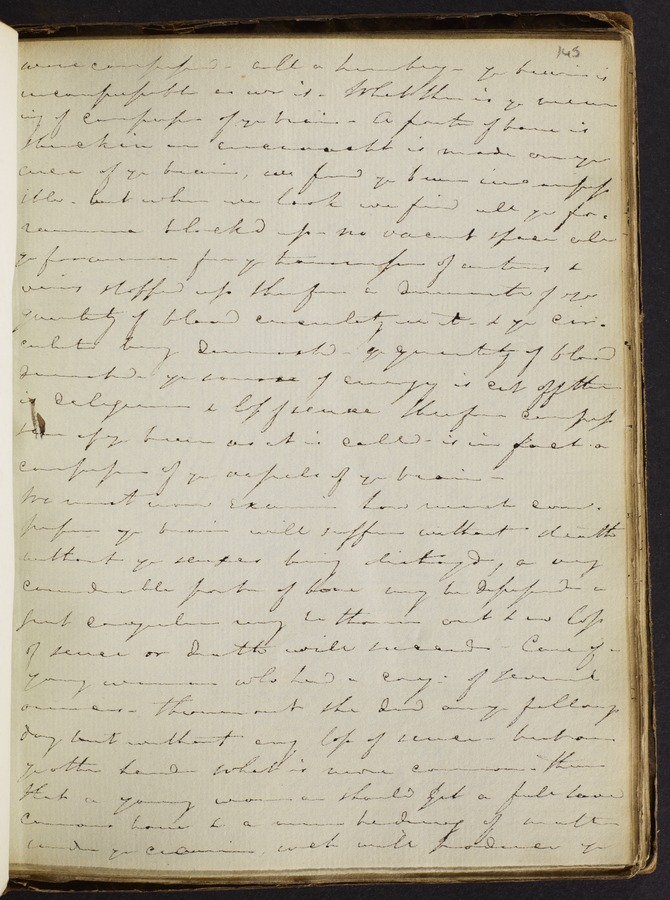 145
were compressed - all a humbug - ye brain is
incompressible as wr is - What then is ye mean
ing of compression of ye brain - A portion of bone is
struck in is made on ye
area of ye brain, we find ye brain incompress
ible - but when we look we find all ye for.
ramina blocked up - no vacant space all
ye foramina for ye transmission of arteries &
veins stopped up therefore a diminution of ye
quantity of blood circulating in it - & ye cir.
culation being diminished - ye quantity of blood
diminished - ye source of energy is cut off then
is deliquium & loss of sense therefore compres
sion of ye brain as it is called - is in fact a
compression of ye vessels of ye brain -
We must now examine how much com.
pression ye brain will suffer without death
without ye senses being destroyd, a very
considerable part of bone may be depressed a
great coagulum may be thrown out & no loss
of sense or death will succeed - Case of a
young woman who had a coag: of several
ounces - thrown out she died on ye following
day but without any loss of sense - but on
ye other hand what is more common than
that a young woman should get a fall
common bone & a mere of matter
under ye cranium, wch will produce ye